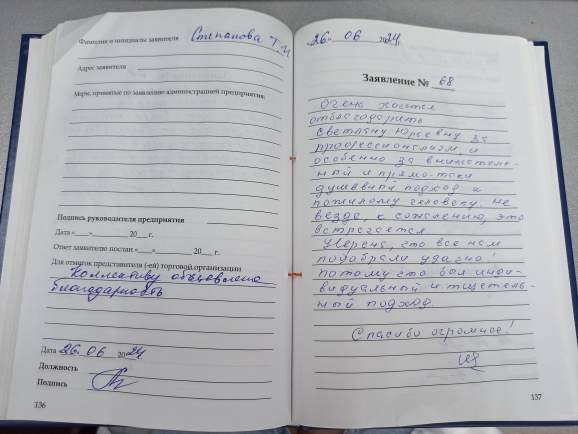 Фамилия и инициалы заявителя Степанова Т.И
Адрес заявителя
Меры, принятые по заявлению администрацией предприятия:
Подпись руководителя предприятия
Дата «___»________20___ г.
Ответ заявителю послан «___»________20___ г.
Для отметок представителя (-ей) торговой организации
Коллективу объявлена
благодарность
Дата 26. 06 2024
Должность
Подпись
136
«26» 06 2024г.
Заявление № 68
Очень хочется
отблагодарить
Светлану Юрьевну за
профессионализм и
особенно за вниматель-
ный и прямо-таки
душевный подход к
пожилому человеку. Не
везде, к сожалению, это
встречается
Уверена, что все нам
подобрали удачно!
потому что был инди-
видуальный и тщатель-
ный подход
Спасибо огромное!
137